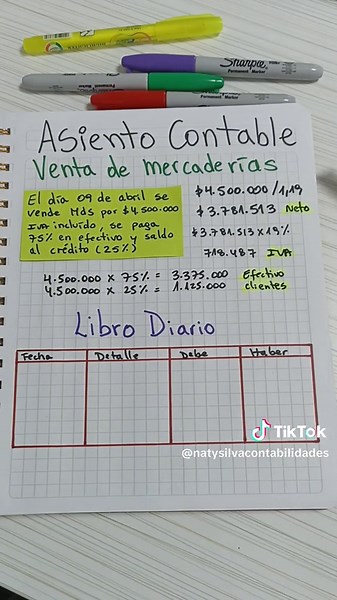 Sharpie
Permanent Marker
Asiento Contable
Venta de mercaderías
El día 09 de abril se
vende Mds por $4.500.000
IVA incluído, se paga
75% en efectivo y saldo
al crédito (25%)
$4.500.000/1,19
$3.781.513 Neto
$3.781.513 x 19%
718.487 IVA
4.500.000 x 75% = 3.375.000 Efectivo
4.500.000 x 25% = 1.125.000 clientes
Libro Diario
Fecha Detalle Debe Haber
TikTok
@natysilvacontabilidades